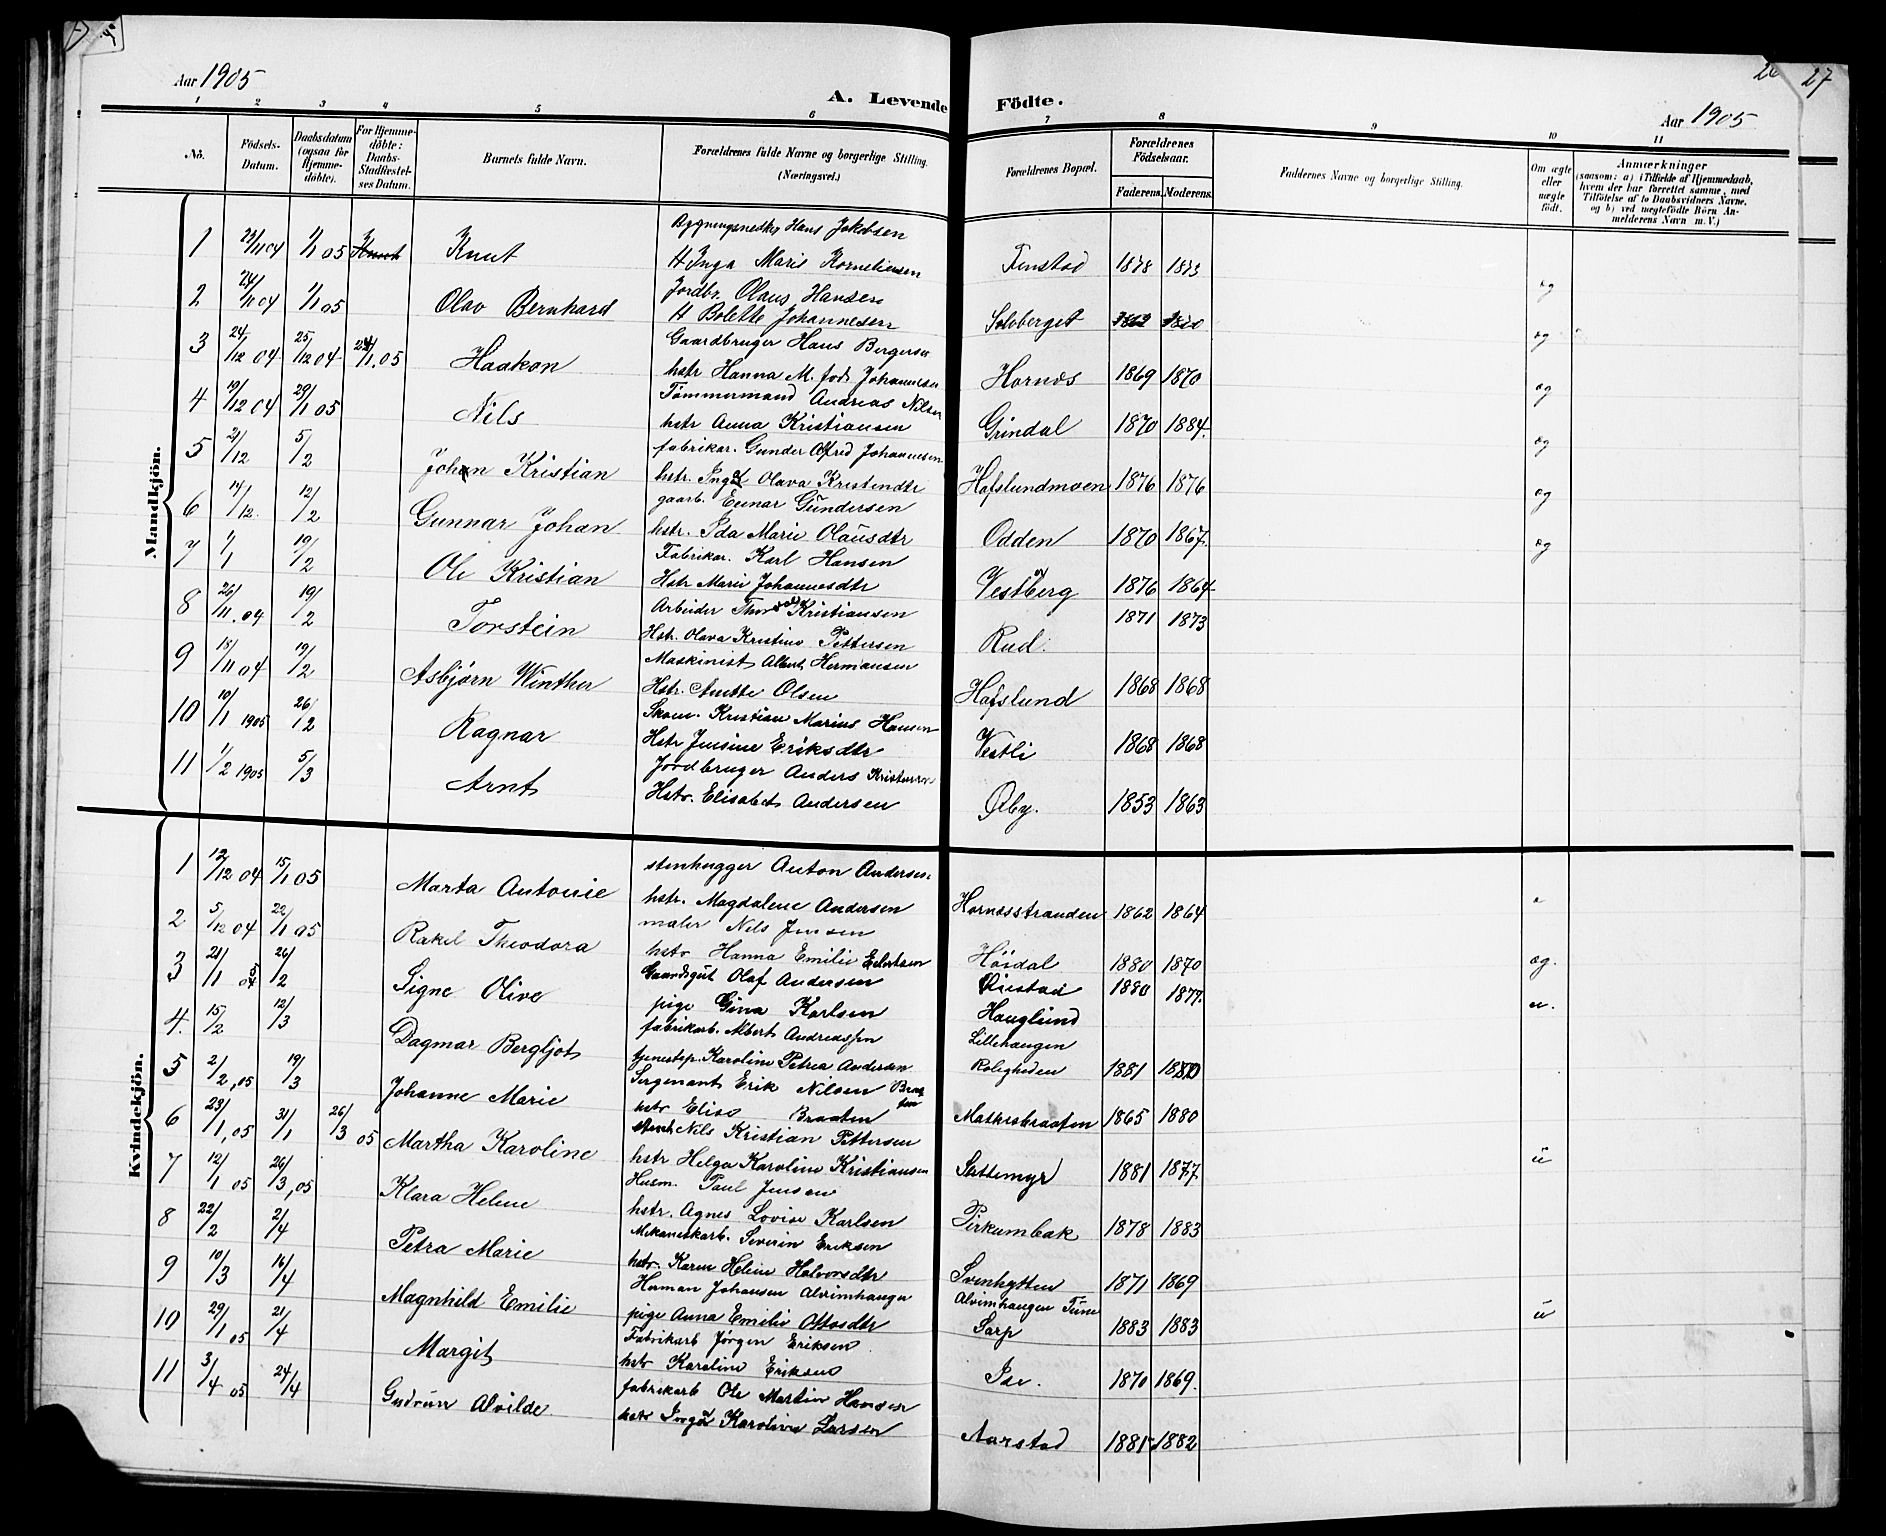 Aar 1905
A. Levende Födte.
Aar 1905
27
1 2 3 4 5 6 7 8 9 10 11
No.
Födsels-Datum.
Daabsdatum (ogsaa for Hjemme-döbte).
For Hjemme-döbte: Daabs-Stadfæstel-ses Datum.
Barnets fulde Navn.
Forældrenes fulde Navne og borgerlige Stilling. (Næringsvei.)
Forældrenes Bopæl.
Forældrenes Födselsaar.
Faderens. Moderens.
Faddernes Navne og borgerlige Stilling.
Om ægte eller uægte födt.
Anmærkninger
(saasom: a) i Tilfælde af Hjemmedaab, hvem der har forrettet samme, med Tilföielse af to Daabsvidners Navne, og b) ved uægtefödte Börn An-melderens Navn m. V.)
Mandkjön.
1 23/11 04 1/1 05 Knut Hans Jakobsen
H Inga Marie Korneliusen Finstad 1878 1873 æg
2 24/11 04 1/1 05 Olav Bernhard Jordbr. Olaus Hansen
H Bolette Johannesen Solberget æg
3 24/12 04 25/12 04 /1.05 Haakon Gaardbruger Hans Bergersen
hstr Hanna M. fød Johannesen Hornæs 1869 1870 æg
4 19/12 04 29/1 05 Nils Tömmermand Andreas Nilsen
hstr Anna Kristiansen Grindal 1870 1884. æg
5 21/12 5/2 Johan Kristian fabrikar. Gunder Alfred Johannesen
hstr. Olava Kristendtr Hafslundmoen 1876 1876 æg
6 14/12. 12/2 Gunnar Johan gaarb. Einar Gundersen
hstr. Ida Marie Olausdtr Odden 1870 1867. æg
7 1/1 19/2 Ole Kristian Fabrikar. Karl Hansen
Hstr Marie Johannesdtr Vestberg 1876 1864
8 26/11.04 19/2 Torstein Arbeider Thorvald Kristiansen
Hstr. Olava Kristine Pettersen Rud. 1871 1873
9 15/11 04 19/2 Asbjørn Winther Maskinist Albert Hermansen
Hstr. Anette Olsen Hafslund 1868 1868
10 19/1 1905 26/2 Ragnar Skom. Kristian Marius Hansen
Hstr Jensine Eriksdtr Vestli 1868 1868
11 1/2 1905 5/3 Arnt Jordbruger Anders Kristensen
Hstr. Elisabet Andersen Øby. 1853 1863
Kvindekjön.
1 12/12 04 15/1 05 Marta Antonie stenhugger Anton Andersen
hstr. Magdalene Andersen Hornæsstranden 1862 1864
2 5/12 04 22/1 05 Rakel Theodora maler Nils Jensen
hstr Hanna Emilie Eilertsen Höidal 1880 1870 æg.
3 21/1 26/2 Signe Olive Gaardsgut Olaf Andersen
pige Gina Karlsen 1880 1877. Hauglund u.
4. 15/2 12/3 Dagmar Bergljot fabrikarb. Albert Andreassen
tjenestep. Karoline Petrea Andersen Lillehaugen
Roligheden 1881
5 2/2,05 19/3 Johanne Marie Sergeant Erik Nilsen Braaten
hstr Elise Braaten 1865 1880
6 23/1,05 31/1 26/3 05 Martha Karoline Nils Kristian Pettersen
hstr Helga Karoline Kristiansen Sattemyr 1881 1877. u
7 12/1 05 26/3,05 Klara Helene Husm. Paul Jensen
hstr. Agnes Lovise Karlsen Pirkumbak 1878 1883
8 22/2 2/4 Petra Marie Mekaniskarb. Severin Eriksen
hstr. Karen Heline Halvorsdtr Svenhytten 1871 1869
9 10/3 16/4 Magnhild Emilie Herman Johansen Alvimhaugen
pige Anna Emilie Ottosdtr Alvimhaugen Tune
Sarp 1883 1883 u
10 29/1 05 21/4 Margit Fabrikarb Jørgen Eriksen
hstr Karoline Eriksen Ise. 1870 1869.
11 3/4 05 24/4 Gudrun Alvilde fabrikarb Ole Martin Hansen
hstr Karoline Larsen Aarstad 1881 1882